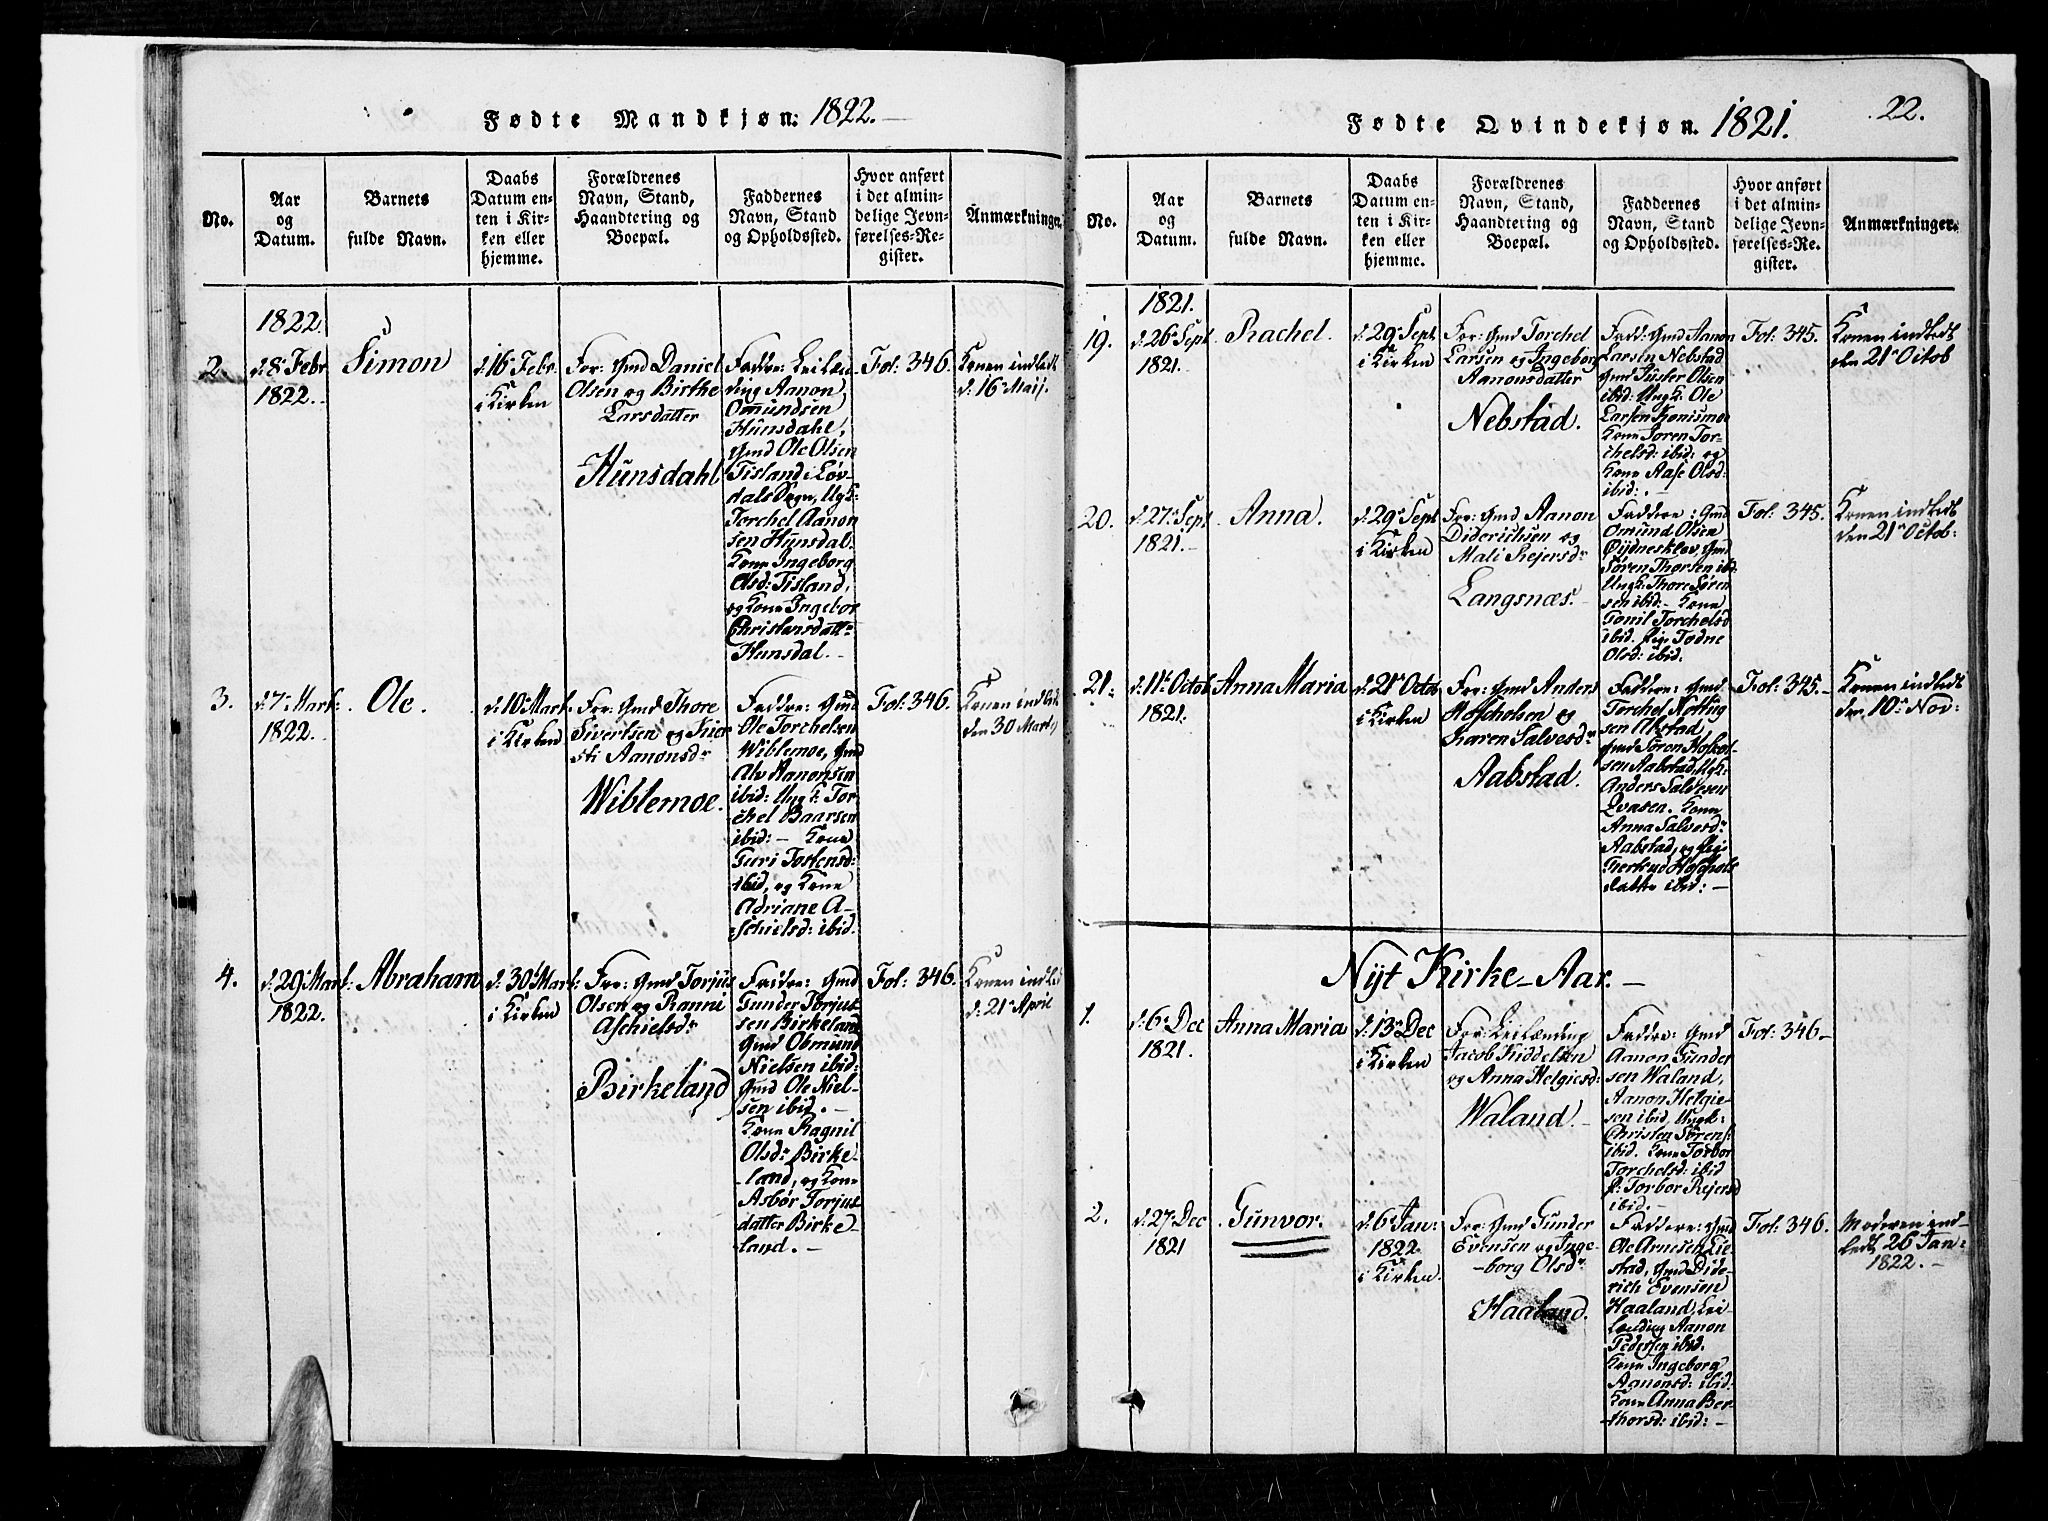 Fødte Mandkjøn: 1822.
No.
Aar
og
Datum.
Barnets
fulde Navn.
Daabs
Datum en-
ten i Kir-
ken eller
hjemme.
Forældrenes
Navn, Stand,
Haandtering og
Boepæl.
Faddernes
Navn, Stand
og Opholdssted.
Hvor anført
i det almin-
delige Jevn-
førelses-Re-
gister.
Anmærkninger.
1822.
2.
d: 8de Febr
1822.
Simon
d: 16de Febr.
i Kirken
For: Gmd Daniel
Olsen og Birthe
Larsdatter
Hunsdahl
Faddre: Leilæn-
ding Aanon
Omundsen
Hunsdahl,
Gmd Ole Olsen
Tisland i Løv-
dals Sogn, Ungk:
Torchel Aanon
sen Hunsdal.
Kone Ingeborg
Olsd: Tisland,
og Kone Ingebor
Christensdattr
Hunsdal.
Fol: 346.
Konen indledt
d: 16de Maij.
3.
d: 7de Mart:
1822.
Ole.
d: 10de Mart.
i Kirken
For: Gmd Thore
Sivertsen og Kier
sti Aanonsdr
Wiblemoe.
Faddre: Gmd
Ole Torchelsen
Wiblemoe, Gmd
Alv Aanonsen
ibid: Ungk. Tor
chel Baarsen
ibid: – Kone
Guri Tostensd:
ibid, og Kone
Adriane A-
schielsd: ibid.
Fol: 346.
Konen indledt
den 30 Mart.
4.
d: 29 Mart:
1822.
Abraham
d: 30 Mart:
i Kirken
For: Gmd Torjus
Olsen og Ranni
Aschielsdr
Birkeland
Faddre: Gmd
Gunder Torjus
sen Birkeland
Gmd Obmund
Nielsen ibid:
Gmd Ole Niel-
sen ibid. –
Kone Ragnil
Olsdr Birke-
land, og Kone
Asbør Torjus
datter Birke
land. –
Fol: 346.
Konen indled
d: 21de April
Fødte Qvindekjøn. 1821.
22.
No.
Aar
og
Datum.
Barnets
fulde Navn.
Daabs
Datum en-
ten i Kir-
ken eller
hjemme.
Forældrenes
Navn, Stand,
Haandtering og
Boepæl.
Faddernes
Navn, Stand
og Opholdssted.
Hvor anført
i det almin-
delige Jevn-
førelses-Re-
gister.
Anmærkninger.
1821.
19.
d: 26de Sept
1821.
Rachel.
d: 29de Sept
i Kirken
For: Gmd Torchel
Larsen og Ingeborg
Aanonsdatter
Nebstad.
Fadd: Gmd Aanon
Larsen Nebstad
Gmd Juster Olsen
ibid: Ungk. Ole
Larsen Konismoe
Kone Joren Tor-
chelsd: ibid: og
Kone Aase Olsd:
ibid: –
Fol: 345.
Konen indledt
den 21de Octob
20.
d: 27de Sept
1821.
Anna.
d: 29de Sept
i Kirken
For: Gmd Aanon
Diderichsen og
Mali Rejersdr
Langsnæs.
Faddere: Gmd
Omund Olsen
Øydneskløv, Gmd
Søren Thorsen ibd:
Ungk: Thore Søren
sen ibid: – Kone
Gonil Torchelsd
ibid. Pige Todne
Olsd: ibid.
Fol: 345.
Konen indledt
den 21de Octob:
21:
d: 11te Octob
1821.
Anna Maria
d: 21de Octob
i Kirken
For: Gmd Anders
Hoscholsen og
Karen Salvesdr
Aabstad.
Faddere: Gmd.
Torchel
sen
Gmd Søren Hoskol-
sen Aabstad, Ungk:
Anders Salvesen
Qvasen. Kone
Anna Salvesdr
Aabstad, og Pige
Hoschols
datter ibid: –
Fol: 345. –
Konen indledt
den 10de Nov:
Nyt Kirke-Aar. –
1.
d: 6te Dec
1821.
Anna Maria
d: 13de Dec
i Kirken
For: Leilænding
Jacob Kiddelsen
og Anna Helgiesd:
Waland.
Faddre: Gmd
Aanon Gunder
sen Waland,
Aanon Helgie-
sen ibid, Ungk:
Christen Sørens:
ibid. Kone Torbor
Torchelsd: ibid
P: Torbor Rejersd
ibid. –
Fol: 346 –
2.
d: 27 Dec
1821
Gunvor.
d: 6te Jan:
1822.
i Kirken.
For: Gmd Gunder
Evensen og Inge-
borg Olsdr
Haaland.
Faddere: Gmd
Ole Arnesen Lie-
stad, Gmd Dide-
rich Evensen
Haaland, Lei-
lænding Aanon
Pedersen ibid.
Kone Ingeborg
Aanonsd: ibid:
Kone Anna Ber
thorsd: ibid: –
Fol: 346.
Moderen ind-
ledt 26 Jan:
1822. –